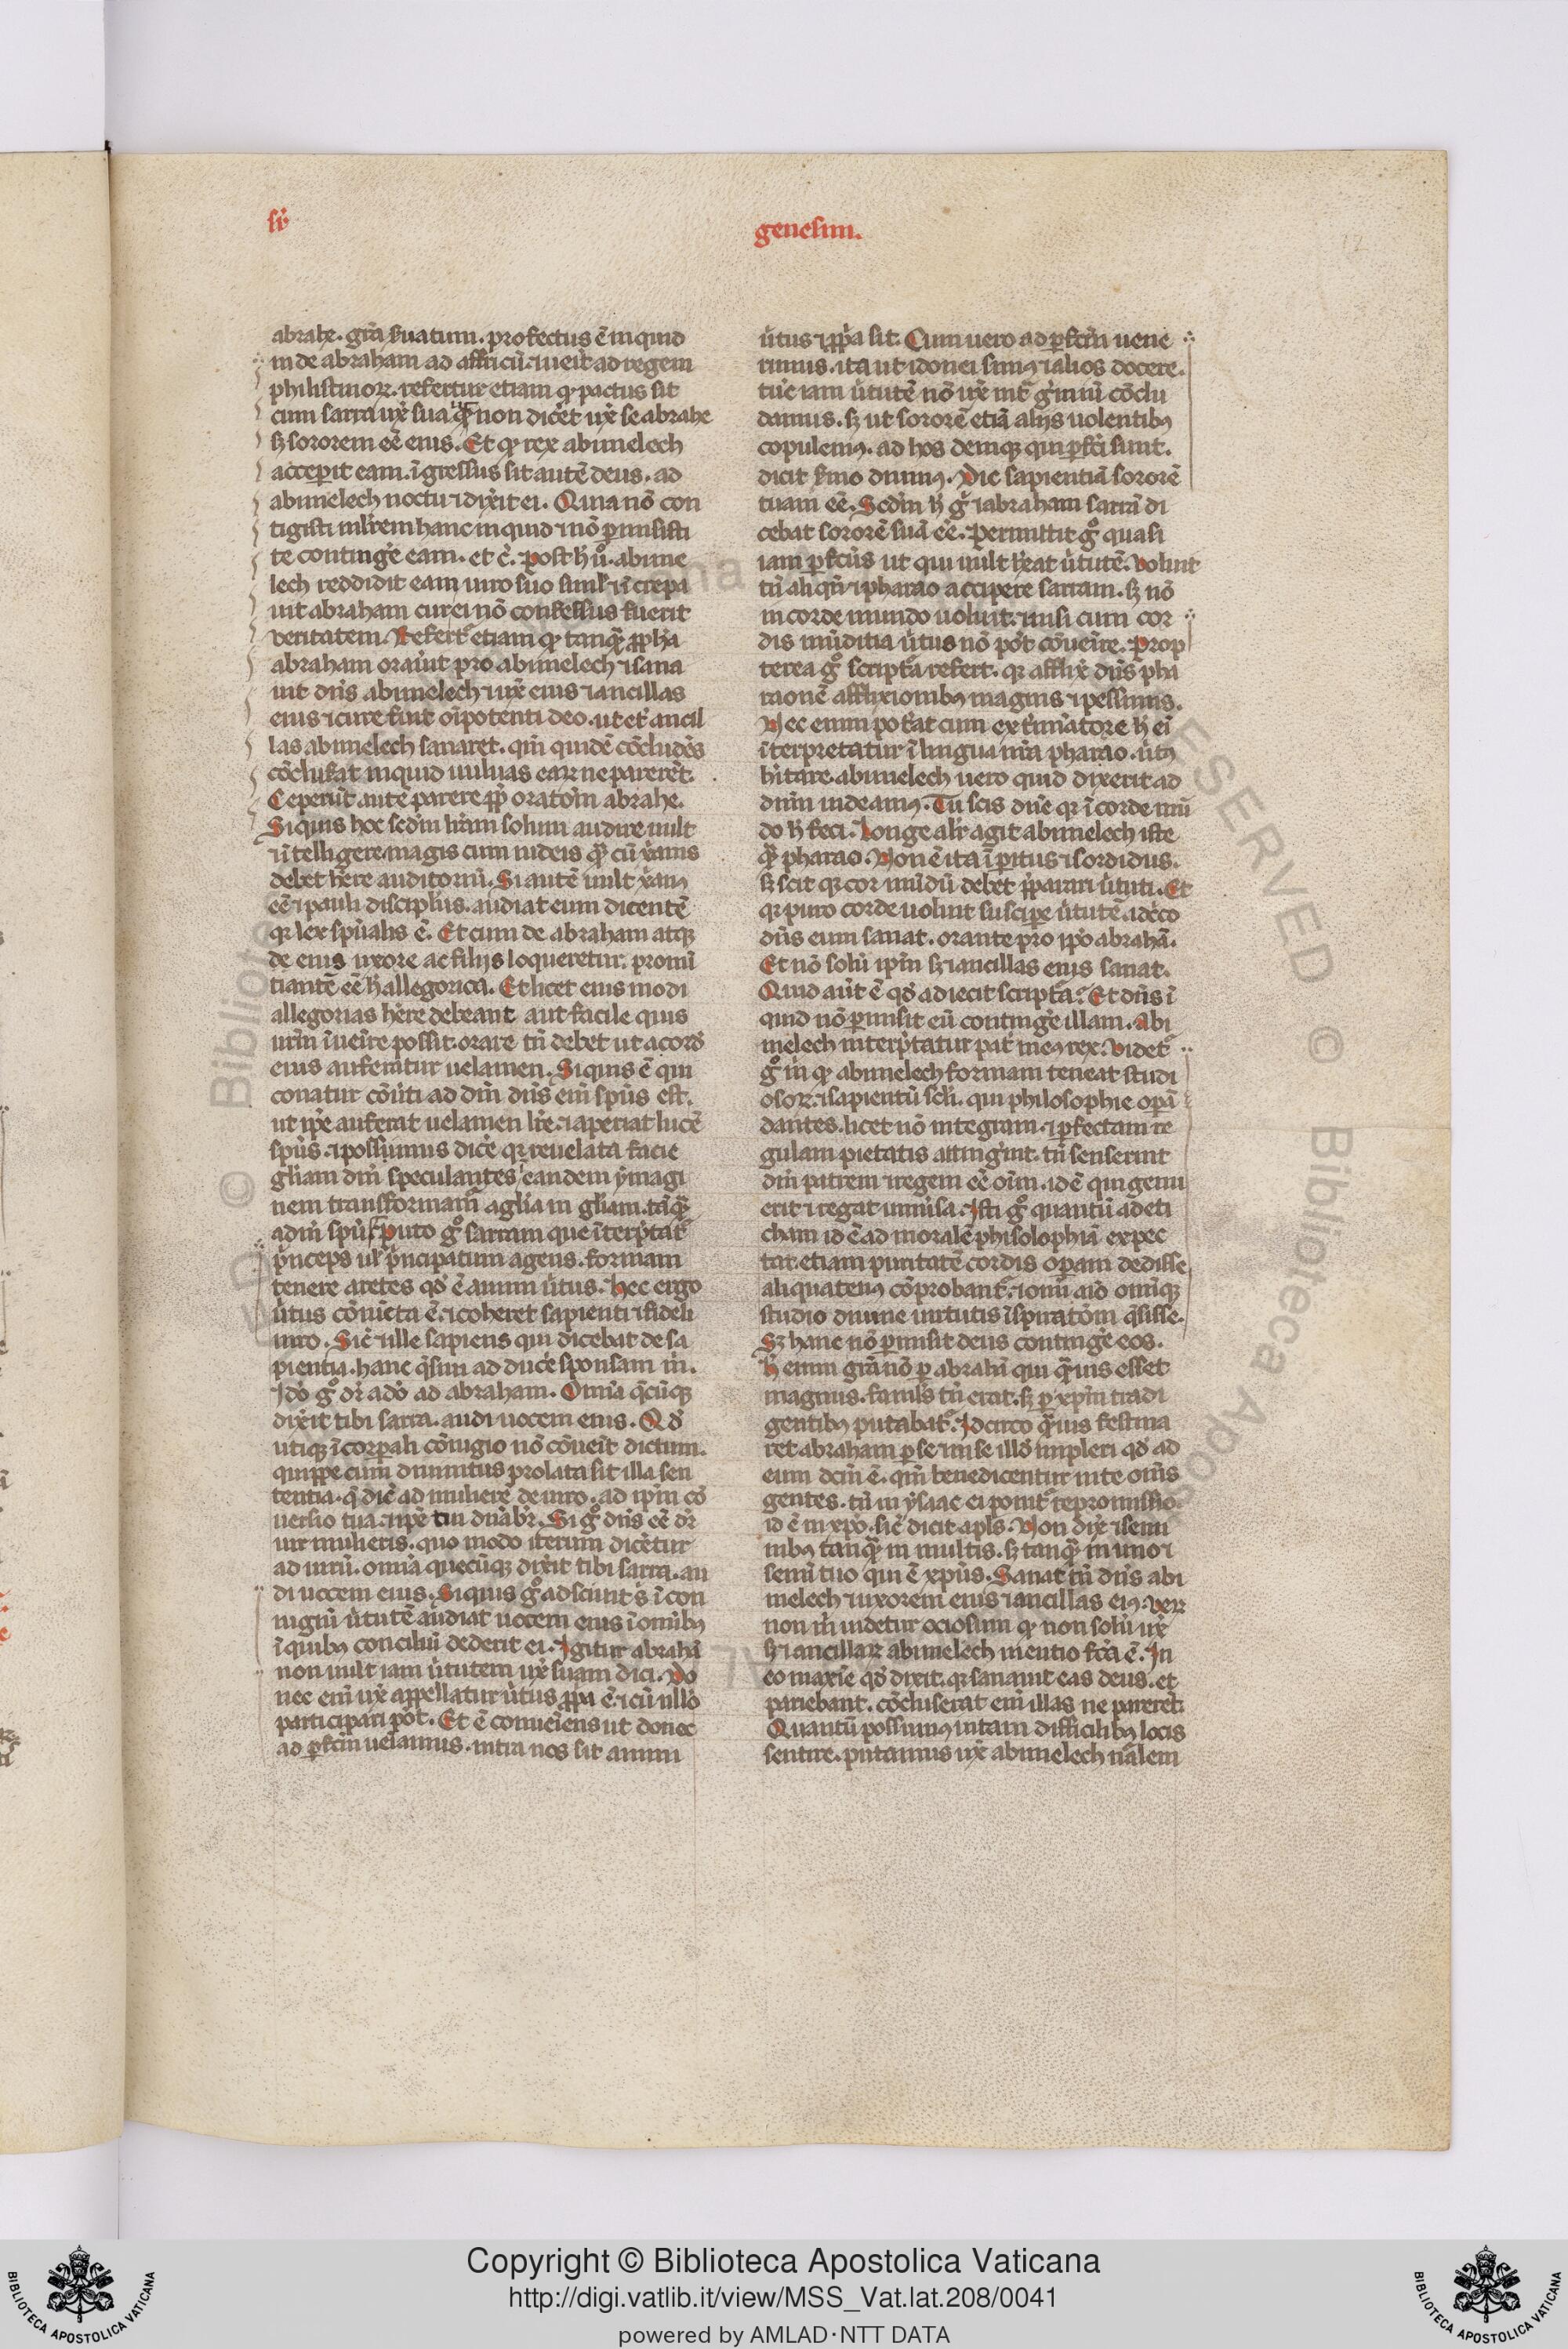 sr̄
genesim.
12
abrahe. gr̄a seruatum. profectus ē inquid
inde abraham ad affricū. ⁊ ueīt ad regem
philistinoꝝ. refertur etiam ꝙ pactus sit
cum sarra ux̄ sua ut non dicēt ux̄ se abrahe
sꝫ sororem eē eius. Et ꝙ rex abimelech
acceperit eam. īgressus sit autē deus. ad
abimelech noctu ⁊ dixit ei. Quia nō con
tigisti mlr̄em hanc inquid ⁊ nō ꝑmisisti
te contingē eam. et c̄. Post h̄ ū. abime
lech reddidit eam uiro suo siml̄ ⁊ īcrepa
uit abraham cur ei nō confessus fuerit
ueritatem. Refert᷑ etiam ꝙ tanqͣ ꝓph̄a
abraham orauit pro abimelech ⁊ sana
uit dn̄s abimelech ⁊ ux̄ eius ⁊ ancillas
eius ⁊ cure fuit oīpotenti deo. ut et᷑ ancil
las abimelech sanaret. qm̄ quidē cōcludēs
cōcluserat inquid uuluas eaꝝ ne parerēt.
Ceperūt autē parere ꝓp̄ oratōm abrahe.
Siquis hoc sedm̄ lr̄am solum audire uult
⁊ ītelligere magis cum iudeis qͣ cū xp̄anis
debet hēre auditoriū. Si autē uult xp̄anꝰ
eē ⁊ pauli discipl̄us. audiat eum dicentē
qꝛ lex spūalis ē. Et cum de abraham atqꝫ
de eius uxore ac filijs loqueretur. pronū
tiantē eē h̄ allegorica. Et licet eius modi
allegorias hēre debeant aut facile quis
nr̄m īueīre possit. orare tn̄ debet ut a cord̄
eius auferatur uelamen. Siquis ē qui
conatur cōuti ad dm̄ dn̄s em̄ spūs est.
ut ip̄e auferat uelamen lr̄e. ⁊ aperiat lucē
spūs. ⁊ possumus dicē qꝛ reuelata facie
gl̄iam dn̄i speculantes eandem ymagi
nem transformam᷑ a gl̄ia in gl̄iam. tāqͣ
a dn̄i spū. Puto gͦ sarram que īterp̄tat᷑
princeps ul̄ principatum agens. formam
tenere aretes qd̄ ē animi ūtus. Hec ergo
ūtus cōiūcta ē. ⁊ coheret sapienti ⁊ fideli
uiro. Sic̄ ⁊ ille sapiens qui dicebat de sa
pientia. hanc q̄siui ad ducē sponsam m̄.
Ido gͦ dr̄ a dō ad abraham. Omia q̄cūqꝫ
dixit tibi sarra. audi uocem eius. Qd̄
utiqꝫ ī corꝑali cōiugio nō cōueīt dictum.
quippe cum diuinitus prolata sit illa sen
tentia. q̄ dic̄ ad mulierē de uiro. ad ip̄m cō
uersio tua. ⁊ ip̄e tui dn̄abr̄. Si gͦ dn̄s eē dr̄
uir mulieris. quo modo iterum dicētur
ad uirū. omia quecūqꝫ dixit tibi sarra. au
di uocem eius. Siquis gͦ adsciuit s̄ ī con
iugiū ūtutē audiat uocem eius ī omībꝰ
ī quibꝰ conciliū dederit ei. Igitur abrahā
non uult iam ūtutem ux̄ suam dici. Do
nec em̄ ux̄ appellatur ūtus ꝓpa ē. ⁊ cū ullō
participari pōt. Et ē conueīens ut donec
ad ꝑfctm̄ ueiamus. intra nos sit animi
ūtus ⁊ ꝓpa sit. Cum uero ad ꝑfctm̄ uene
rimus. ita ut idonei simꝰ ⁊ alios docere.
tūc iam ūtutē nō ux̄ int̄ gͥmiū cōclu
damus. sꝫ ut sororē etiā alijs uolentibꝰ
copulemꝰ. ad hos deniqꝫ qui ꝑfcti sunt.
dicit s̄mo diuinꝰ. Dic sapientiā sororē
tuam eē. Sedm̄ h̄ gͦ ⁊ abraham sarrā di
cebat sororē suā eē. Permittit gͦ quasi
iam ꝑfctus ut qui uult hēat ūtutē. Voluit
tn̄ aliqn̄ ⁊ pharao accipere sarram. sꝫ nō
in corde mundo uoluit. ⁊ nisi cum cor
dis mūditia ūtus nō pōt cōueīre. Prop
terea gͦ scriptͣa refert. qꝛ afflix̄ dn̄s pha
raonē afflixionibꝰ magnis ⁊ pessimis.
Nec enim poterat cum extīnatore h̄ ei
īterpretatur ī lingua nr̄a pharao. ūtꝰ
hītare. abimelech uero quid dixerit ad
dn̄m uideamꝰ. Tu scis dn̄e qꝛ ī corde mū
do h̄ feci. Longe alr̄ agit abimelech iste
qͣ pharao. Non ē ita īperitus ⁊ sordidus.
sꝫ scit qꝛ cor mūdū debet p̄parari ūtuti. Et
qꝛ puro corde uoluit suscipe ūtutē. ideco
dn̄s eum sanat. orante pro ip̄o abrahā.
Et nō solū ip̄m sꝫ ⁊ ancillas eius sanat.
Quid aūt ē qd̄ adiecit scriptͣa. Et dn̄s ī
quid nō ꝑmisit eū contingē illam. Abi
melech interp̄tatur pat᷑ meꝰ rex. Videt᷑
gͦ m̄ ꝙ abimelech formam teneat studi
osoꝝ. ⁊ sapientū scl̄i. qui philosophie oꝑā
dantes. licet nō integram. ⁊ ꝑfectam re
gulam pietatis attingerint. tn̄ senserint
dm̄ patrem ⁊ regem eē oīm. id ē qui genu
erit ⁊ regat uniūsa. Isti gͦ quantū ad eti
cham id ē ad moralē philosophiā expec
tat. etiam puritatē cordis oꝑam dedisse
aliquatenꝰ cōprobant᷑. ⁊ omī aīo omīqꝫ
studio diuine uirtutis īspiratōm q̄sisse.
Sꝫ hanc nō ꝑmisit deus contingē eos.
H̄ enim gr̄a nō ꝑ abrahā qui qͣuis esset
magnus. famul̄s tn̄ erat. sꝫ ꝑ xp̄m tradi
gentibꝰ putabat᷑. Idcirco qͣuis festina
ret abraham ꝑ se ⁊ in se illd̄ impleri qd̄ ad
eum dcm̄ ē. qm̄ benedicentur in te omēs
gentes. tn̄ in ysaac ei ponit᷑ repromissio.
id ē in xp̄o. sic̄ dicit apl̄s. Non dix̄ ⁊ semi
nibꝰ tanqͣ in multis. sꝫ tanqͣ in uno ⁊
semī tuo qui ē xp̄us. Sanat tn̄ dn̄s abi
melech ⁊ uxorem eius ⁊ ancillas eiꝰ. Veꝝ
non m̄ uidetur ociosum ꝙ non solū ux̄
sꝫ ⁊ ancillaꝝ abimelech mentio fcā ē. In
eo maxīe qd̄ dixit. qꝛ sanauit eas deus. et
pariebant. cōcluserat em̄ illas ne parerēt.
Quantū possumꝰ in tam difficilibꝰ locis
sentire. putamus ux̄ abimelech nālem
Copyright © Biblioteca Apostolica Vaticana
http://digi.vatlib.it/view/MSS_Vat.lat.208/0041
powered by AMLAD·NTT DATA
BIBLIOTECA APOSTOLICA VATICANA
BIBLIOTECA APOSTOLICA VATICANA